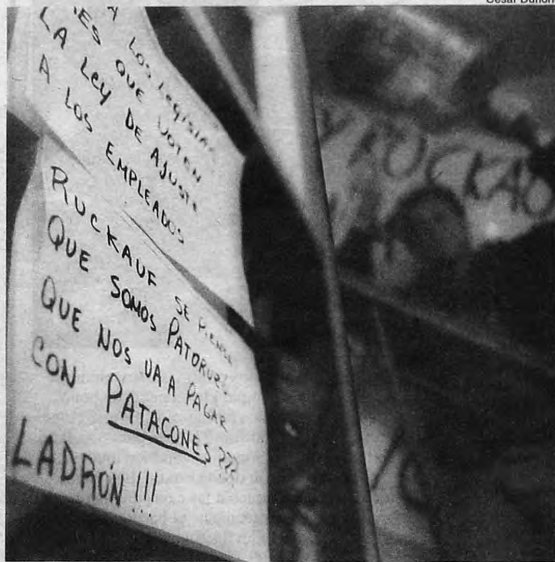 A LOS LEGISLA-
RES QUE VOTEN
LA LEY DE AJUSTE
A LOS EMPLEADOS
RUCKAUF SE PIENSA
QUE SOMOS PATORUZÚ
QUE NOS VA A PAGAR
CON PATACONES???
LADRÓN!!!
Y RUCKAU